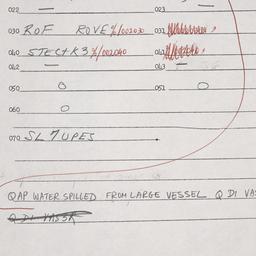 022 — 023 —
030 ROF ROVE %/002030 031
040 STECTK3 %/002040 041
042 — 043 —
050 O 051 O
060 O
070 SL 7 UPES
QAP WATER SPILLED FROM LARGE VESSEL Q DI VAS
Q DI VASSA